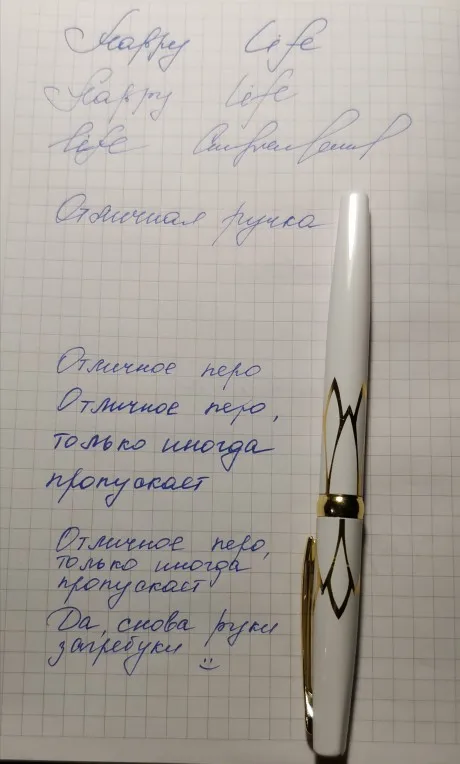 Happy Life
Happy Life
life
Отличная ручка
Отличное перо
Отличное перо,
только иногда
пропускает
Отличное перо,
только иногда
пропускает
Да, снова руки
загребуки :)